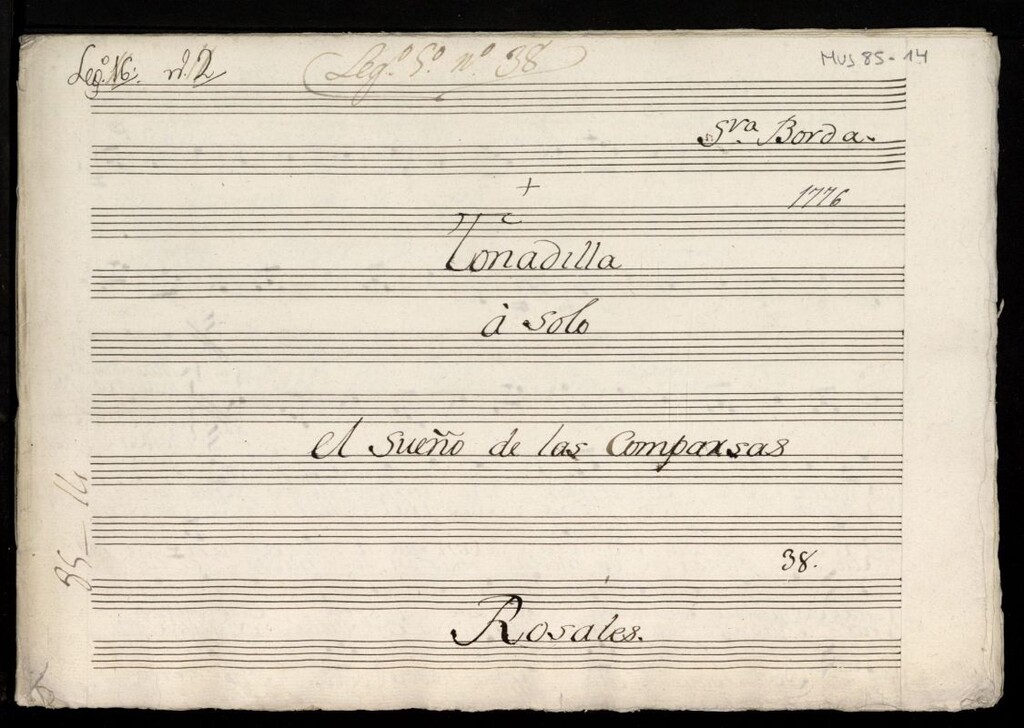 Leg.º 16. n.º 2
Leg.º 5.º n.º 38
MUS 85-14
S.ra Borda.
1776
Tonadilla
à solo
el sueño de las Comparsas
85-14
38.
Rosales.